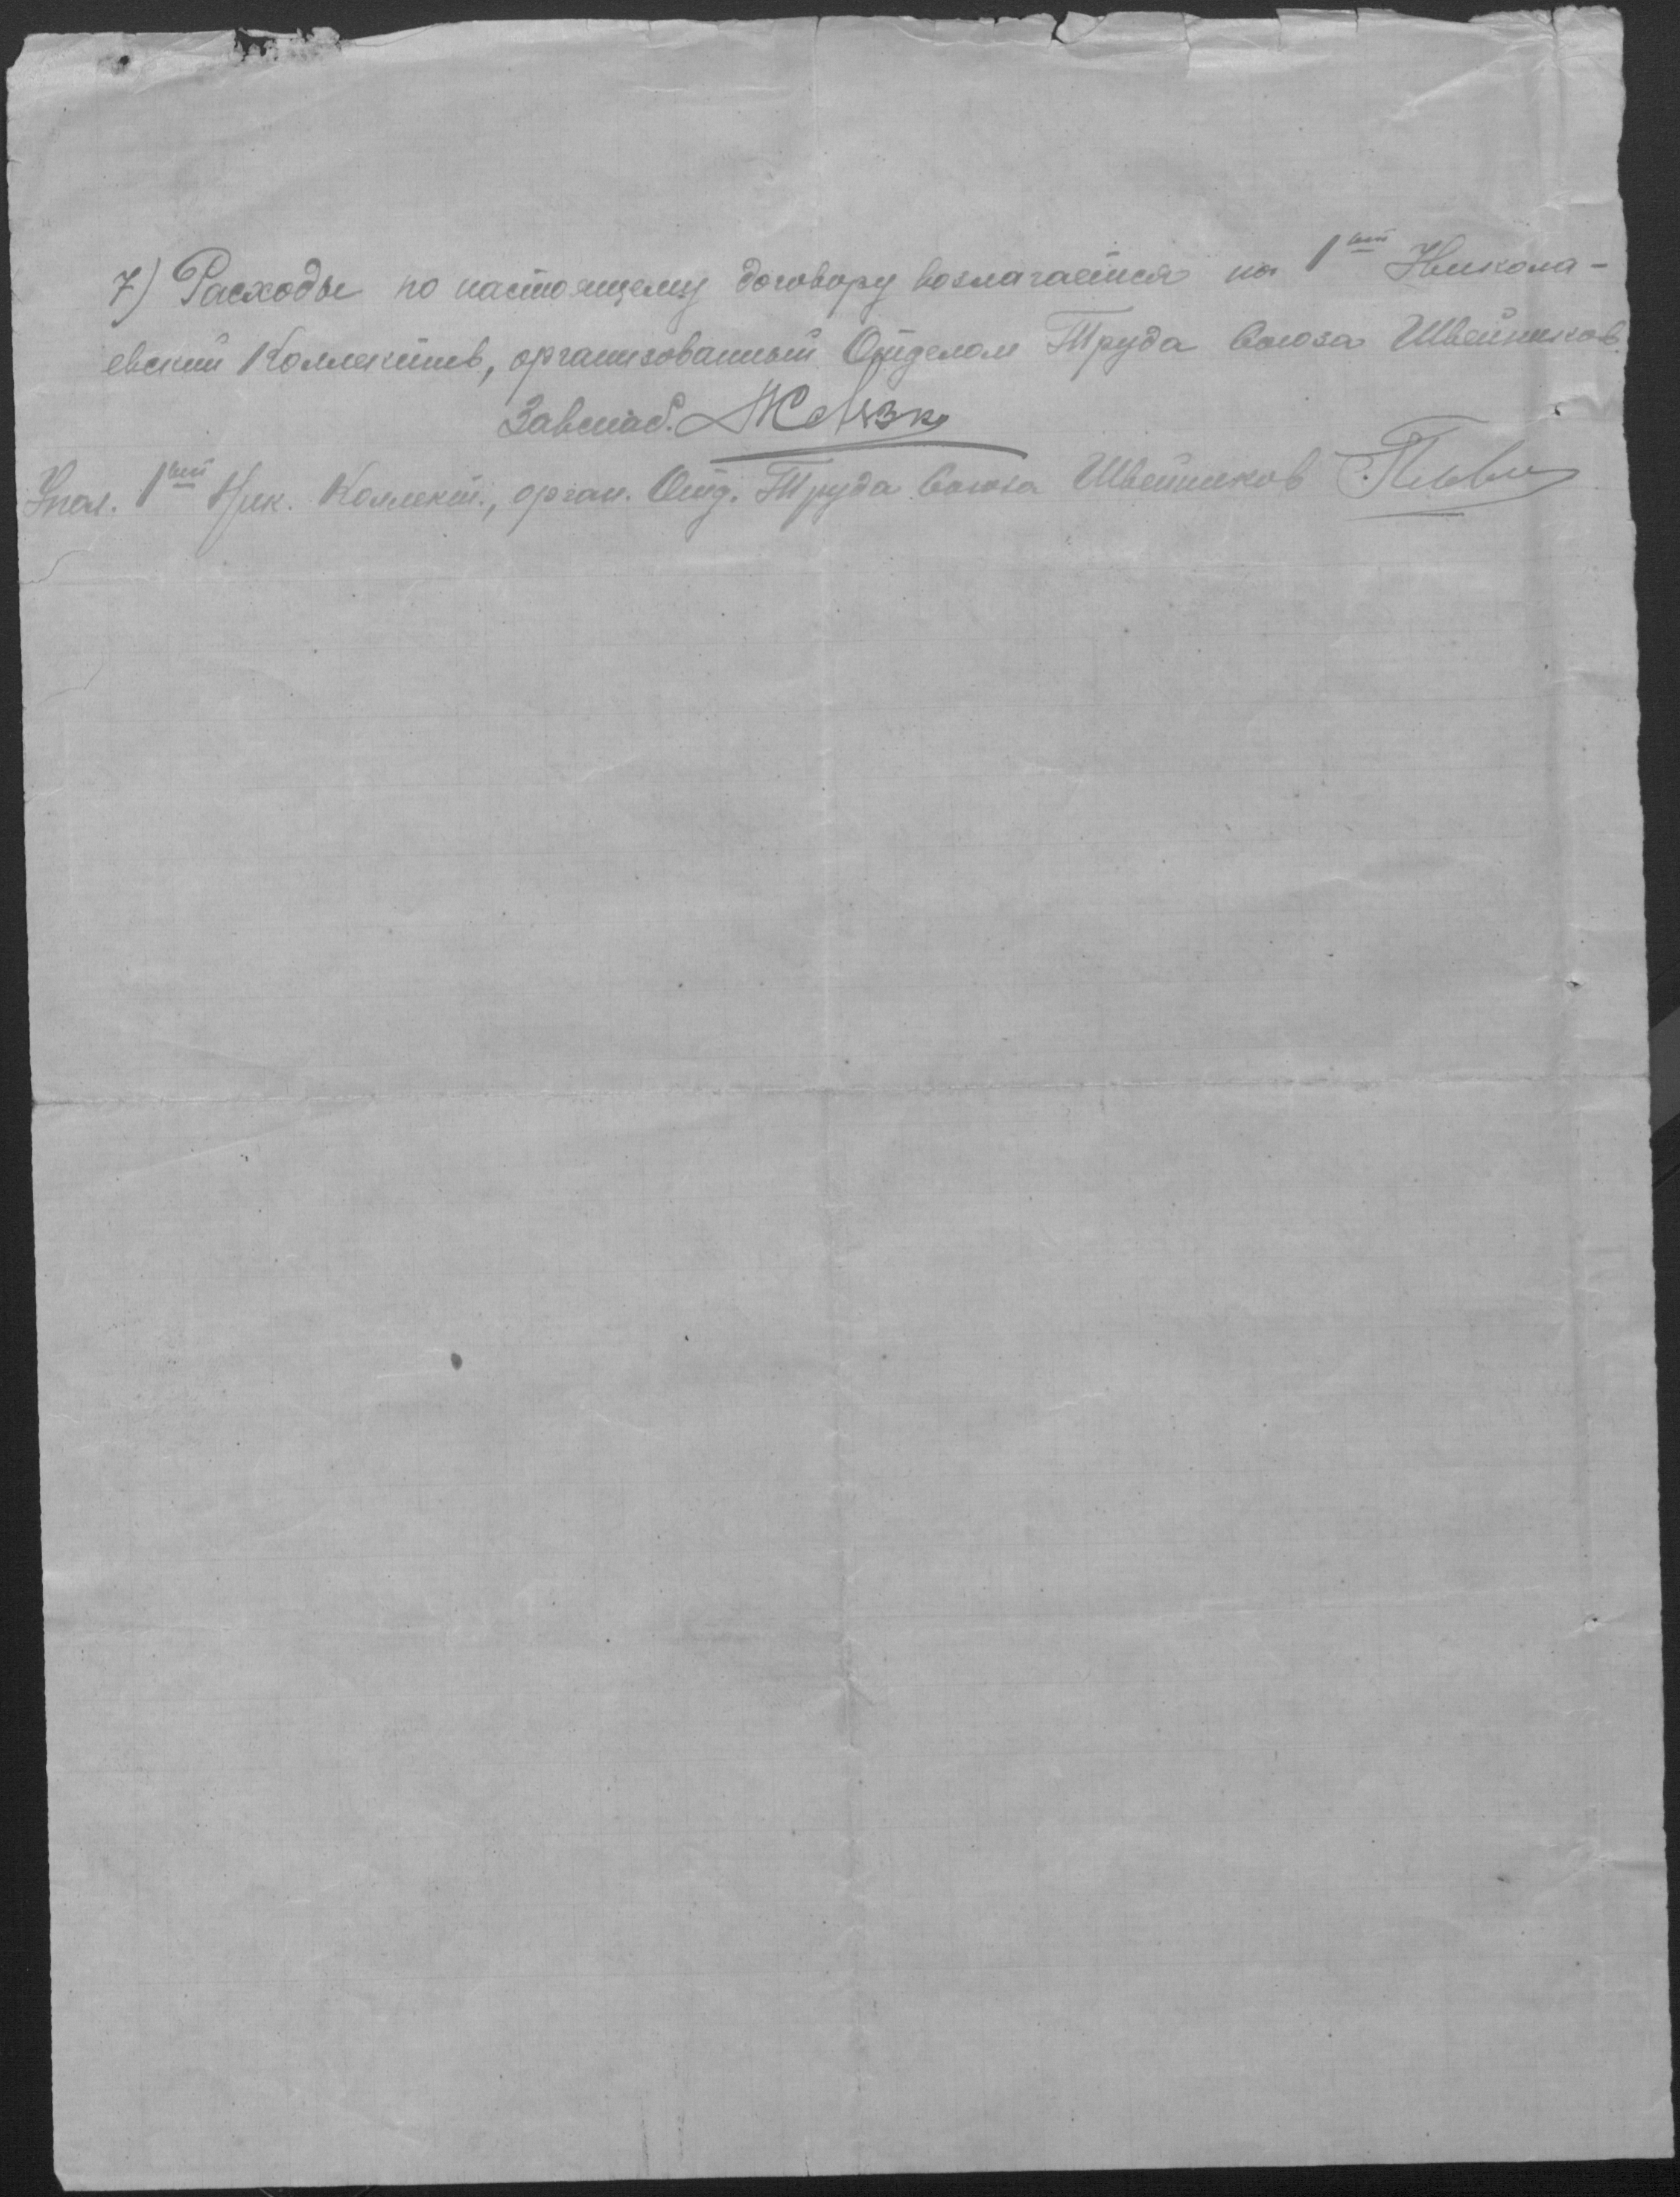 7) Расходы по настоящему договору возлагается на 1ый Никола-
евский Коллектив, организованный Отделом Труда Союза Швейников.
Завснаб.
Упол. 1ый Ник. Коллект., орган. Отд. Труда Союза Швейников